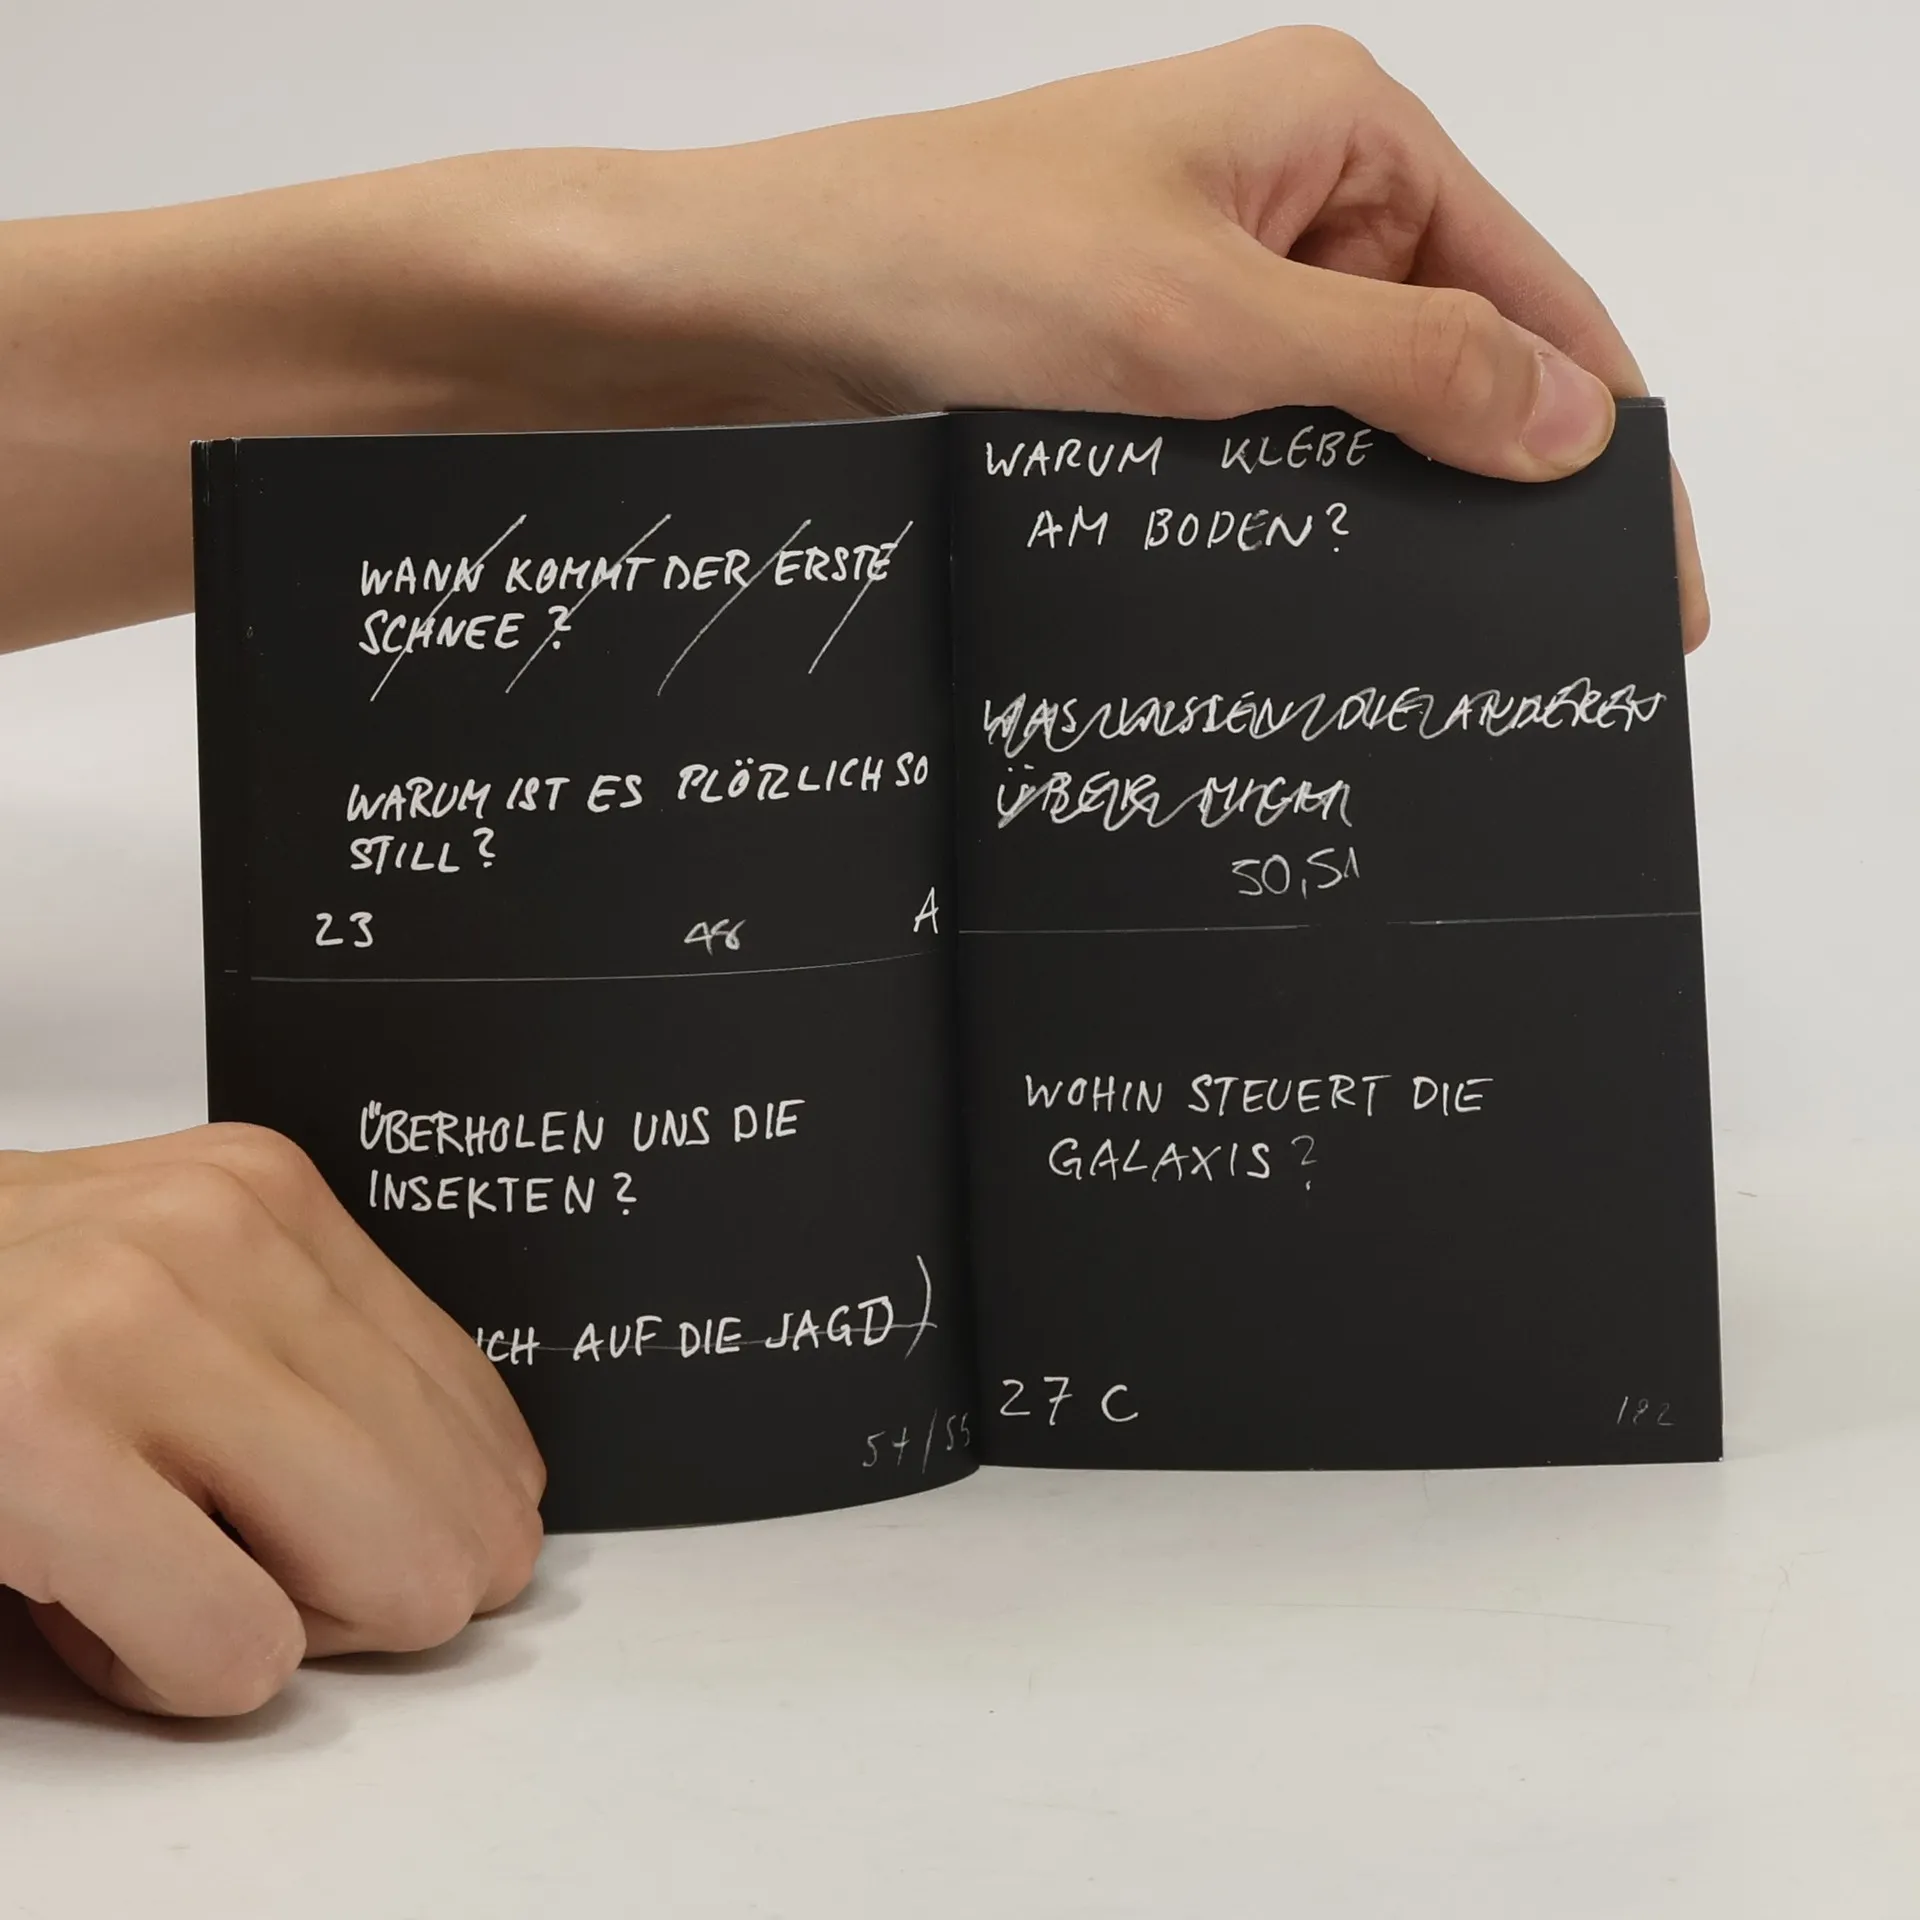 WANN KOMMT DER ERSTE
SCHNEE?
WARUM IST ES PLÖTZLICH SO
STILL?
23 48 A
ÜBERHOLEN UNS DIE
INSEKTEN?
ICH AUF DIE JAGD)
WARUM KLEBE
AM BODEN?
WAS WISSEN DIE ANDEREN
ÜBER MICH
50,51
WOHIN STEUERT DIE
GALAXIS?
27 C